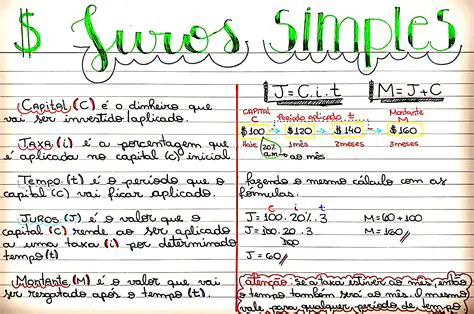 $ Juros Simples
Capital (C) é o dinheiro que
vai ser investido/aplicado.
Taxa (i) é a porcentagem que
é aplicada no capital (C) inicial
Tempo (t) é o período que o
capital (C) vai ficar aplicado.
Juros (J) é o valor que o
capital (C) rende ao ser aplicado
a uma taxa (i) por determinado
tempo (t)
Montante (M) é o valor que vai
ser resgatado após o tempo (t).
J = C.i.t
M = J + C
CAPITAL
C
Período aplicado t
Montante
M
$100 → $120 → $140 → $160
Hoje
20%
a.m
→ ao mês
1 mês
2 meses
3 meses
fazendo o mesmo cálculo com as
fórmulas.
C i t
J = 100 . 20% . 3
J = 100 . 20 . 3
100
J = 60
M = 60 + 100
M = 160
atenção: se a taxa estiver ao mês, então
o tempo também será ao mês. O mesmo
vale para qualquer período de tempo